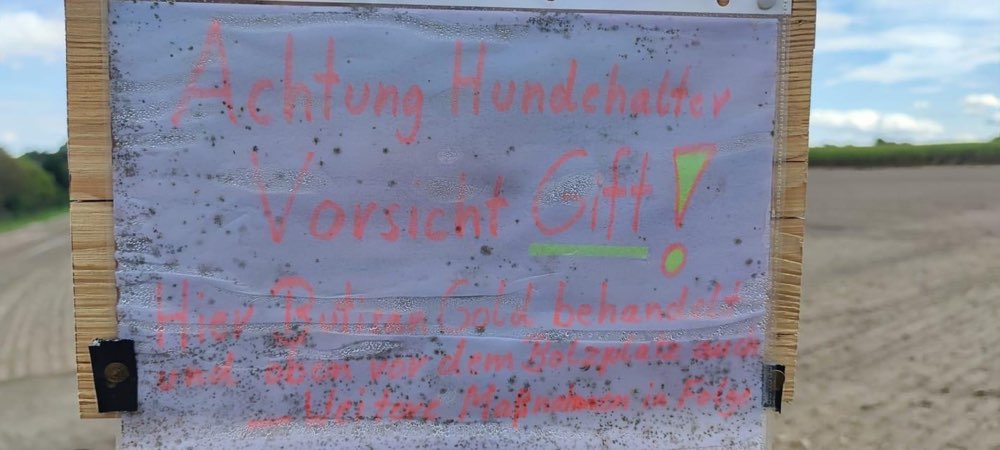 Achtung Hundehalter
Vorsicht Gift!
Hier Butisan Gold behandelt
und oben vor dem Bolzplatz auch
Weitere Maßnahmen in Folge